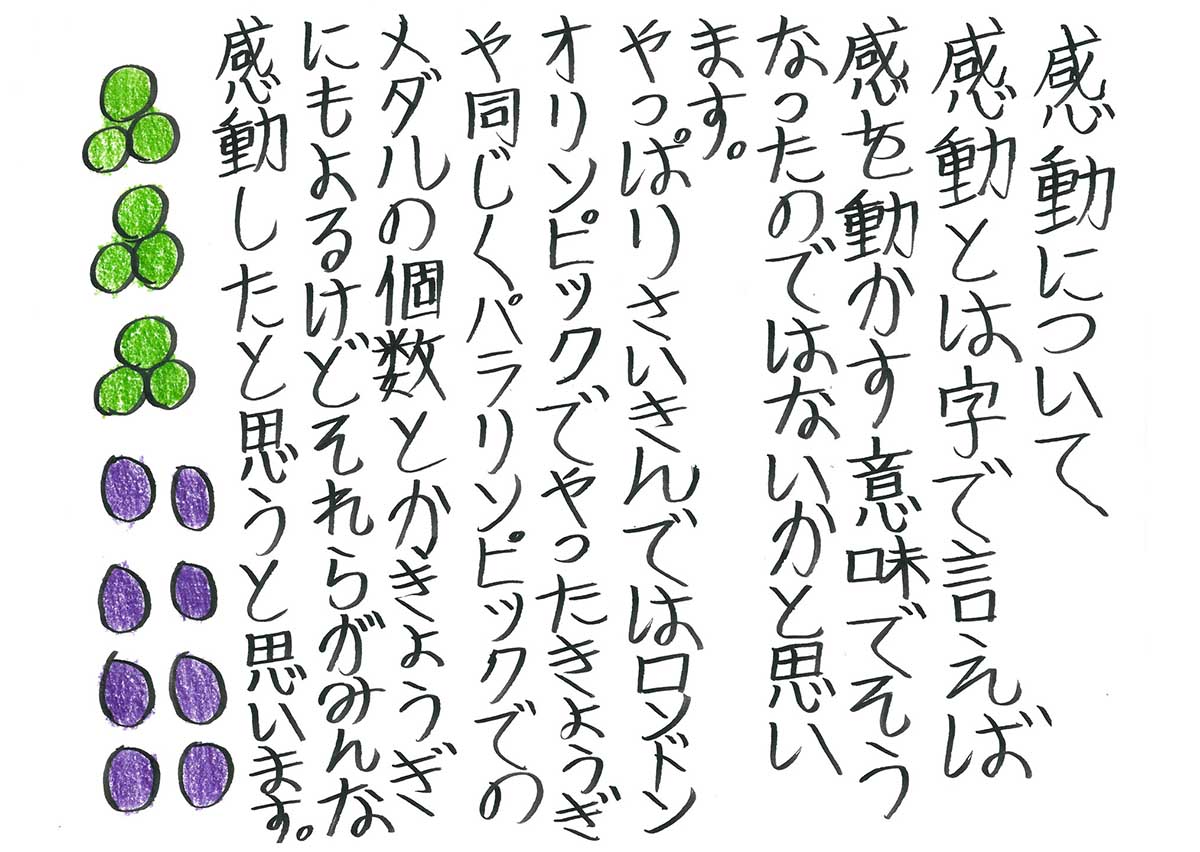 感動について
感動とは字で言えば
感を動かす意味でそう
なったのではないかと思い
ます。
やっぱりさいきんではロンドン
オリンピックでやったきょうぎ
や同じくパラリンピックでの
メダルの個数とかきょうぎ
にもよるけどそれらがみんな
感動したと思うと思います。